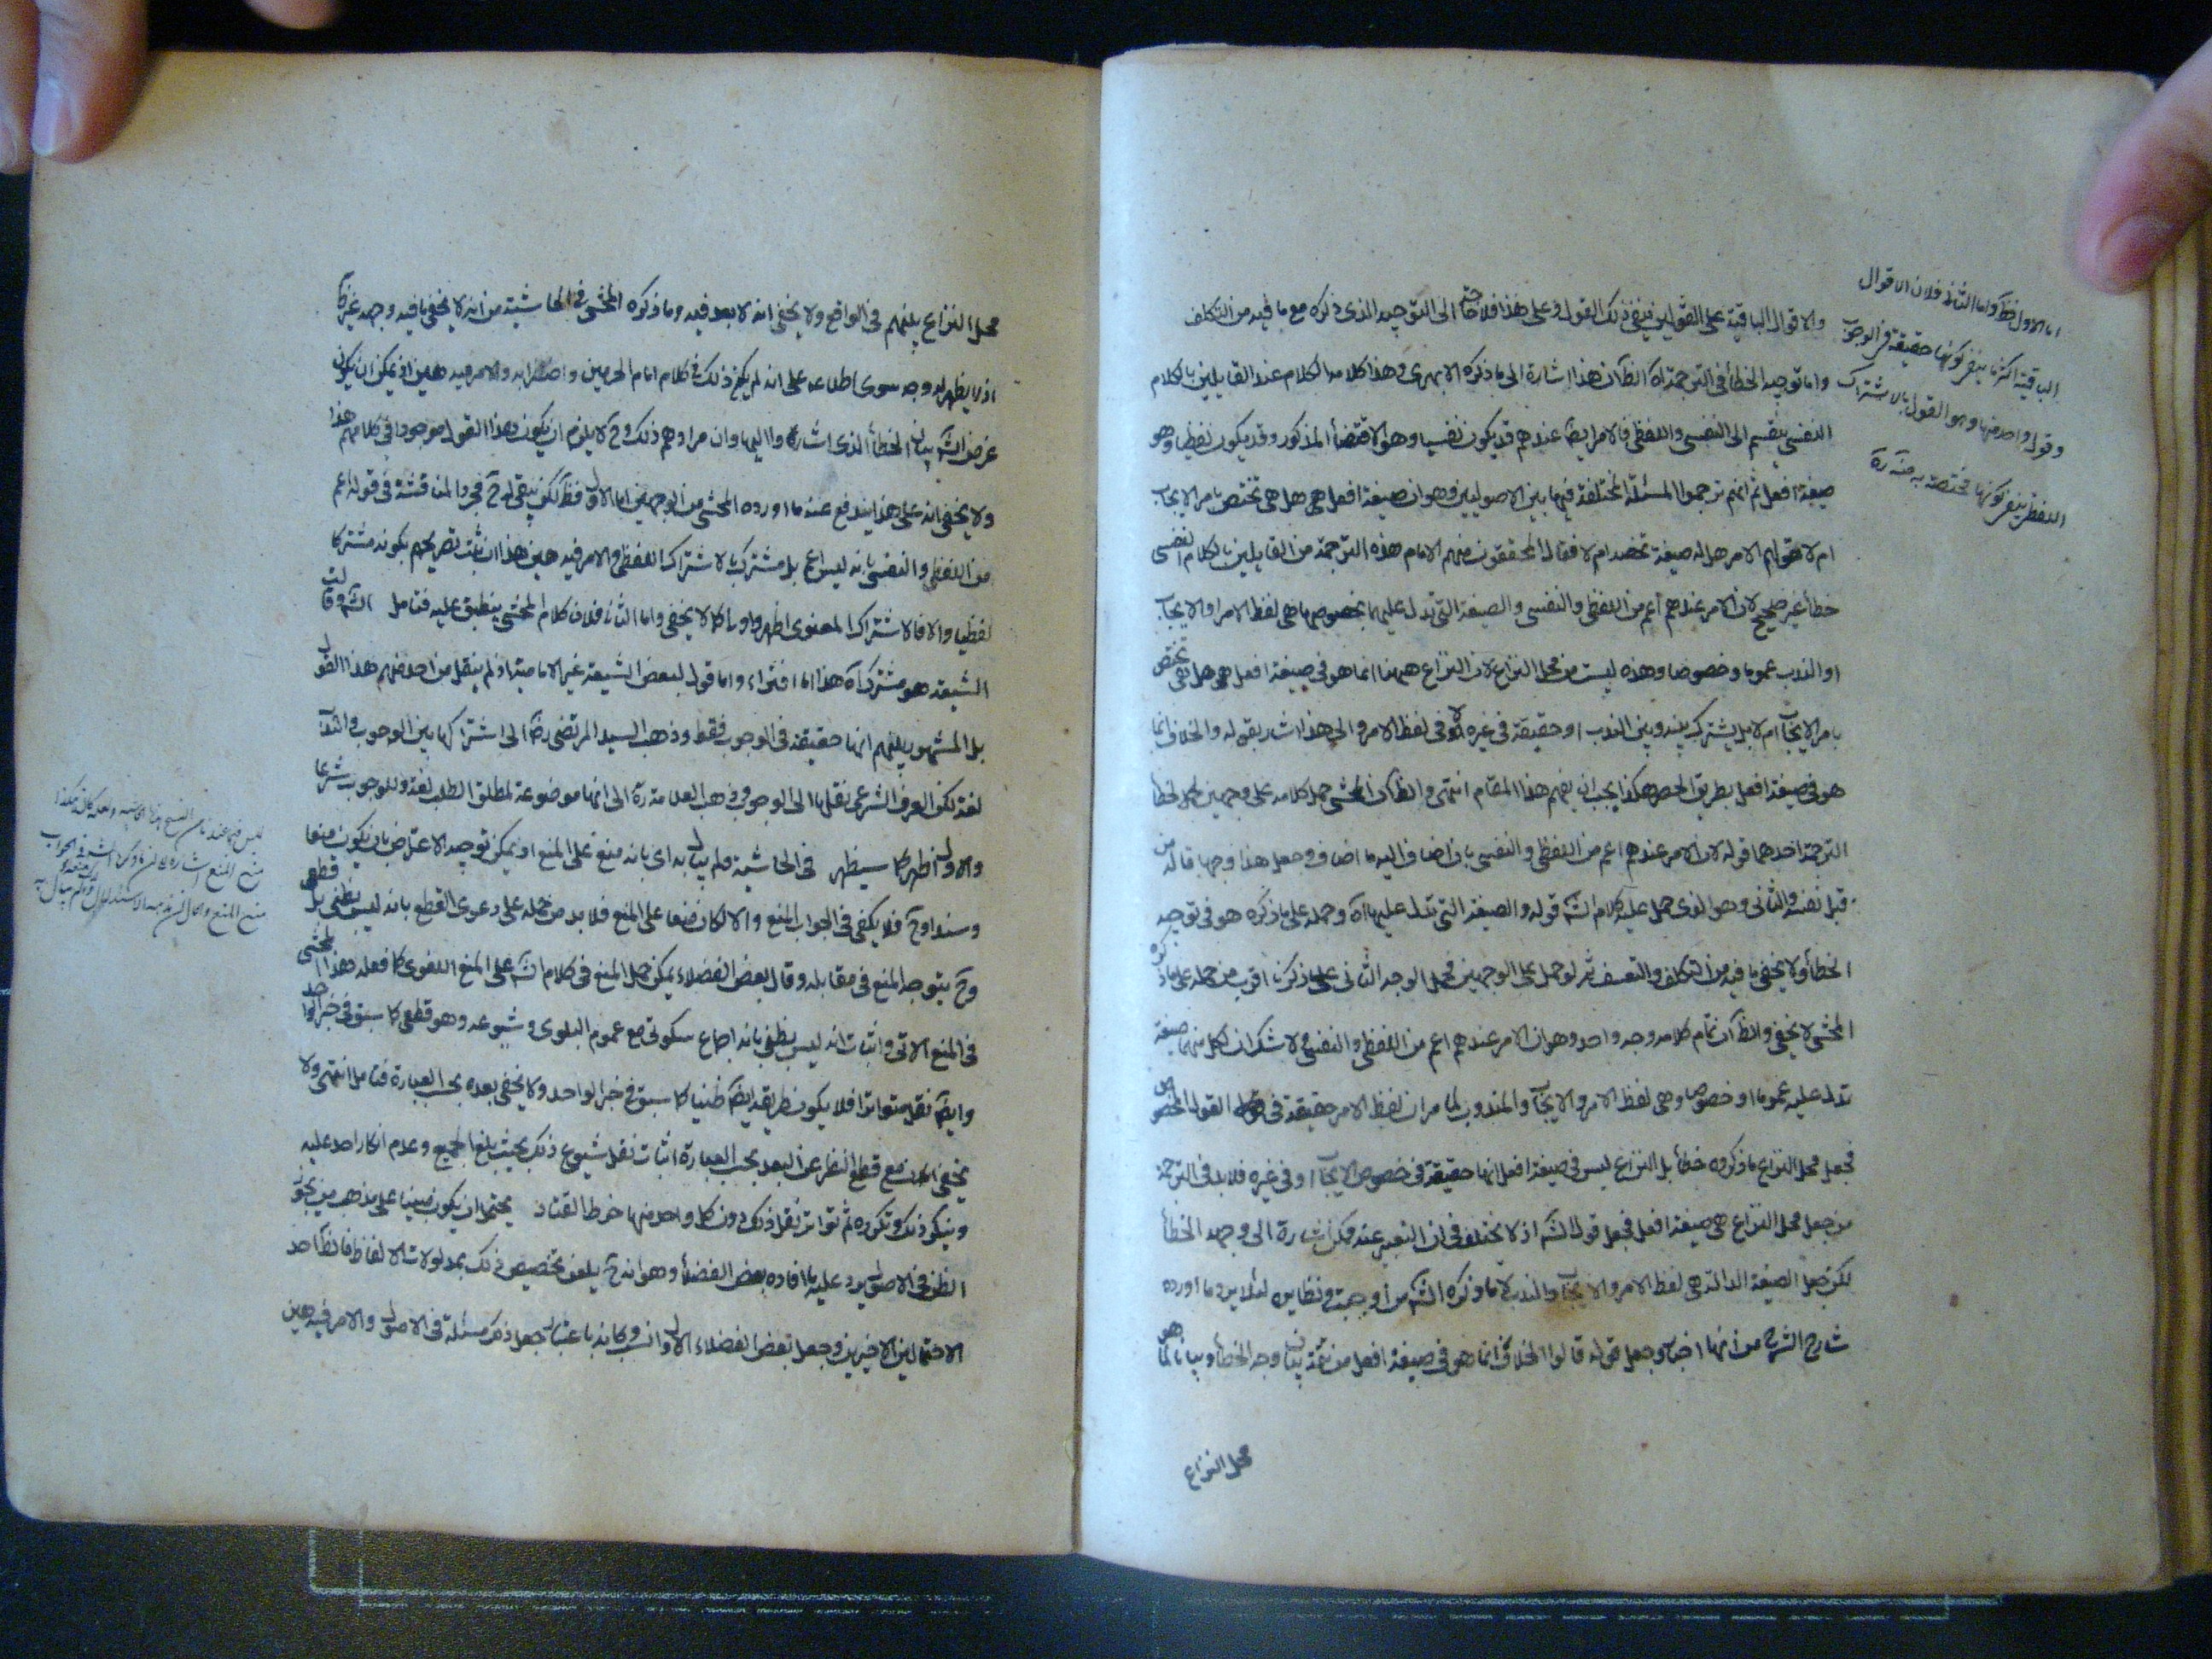 والاقوال الباقية على القولين ينفي ذلك القول وعلى هذا فلا حاجة الى التوجيه الذى ذكره مع ما فيه من التكلف
واما توجيه الخطأ فى الترجمة اه الظ ان هذا اشارة الى ما ذكره الابهرى وهذا كلامه الكلام عند القايلين بالكلام
النفسى ينقسم الى النفسى واللفظى فالامر ايضا عندهم قد يكون نفسيا وهو الاقتضاء المذكور وقد يكون لفظيا وهو
صيغة افعل ثم انهم ترجموا المسئلة المختلفة فيها بين الاصوليين وهو ان صيغة افعل هى هل هى تختص بامر الايجاب
ام لا بقولهم الامر هل له صيغة تخصه ام لا فقال المحققون منهم الامام هذه الترجمة من القايلين بالكلام النفسى
خطأ غير صحيح لان الامر عندهم اعم من اللفظى والنفسى والصيغة التى تدل عليهما بخصوصهما هى لفظ الامر او الايجاب
او الندب عموما وخصوصا وهذه ليست من محل النزاع لان النزاع ههنا انما هو فى صيغة افعل هى هل هى تختص
بامر الايجاب ام لا بل يشترك بينه وبين الندب او حقيقة فى غيره لا فى لفظ الامر والى هذا اشار بقوله والخلاف انما
هو فى صيغة افعل بطريق الحصر هكذا يجب ان يفهم هذا المقام انتهى والظ ان المحشى حمل كلامه على وجهين لحمل الخطأ
الترجمة احدهما قوله لان الامر عندهم اعم من اللفظى والنفسى بان اضاف اليه ما اضاف وجعل هذا وجها قاله من
قبل نفسه والثانى وهو الذى حمل عليه كلام الش قوله والصيغة التى تدل عليها اه وحمله على ما ذكره هو فى توجيه
الخطأ ولا يخفى ما فيه من التكلف والتعسف ثم لو حمل على الوجهين فحمل الوجه الثانى على ما ذكرنا اقرب من حمله على ما ذكره
المحشى لا يخفى والظ ان تمام كلامه وجه واحد وهو ان الامر عندهم اعم من اللفظى والنفسى ولا شك ان لكل منهما صيغة
تدل عليه عموما او خصوصا وهى لفظ الامر والايجاب والمندوب لما مر ان لفظ الامر حقيقة فى القول المخصوص
فجعل محل النزاع ما ذكروه خطأ بل النزاع ليس فى صيغة افعل انها حقيقة فى خصوص الايجاب او فى غيره فلابد فى الترجمة
من جعل محل النزاع هى صيغة افعل فجعل قول الش اذ لا يختلف فى ان التعبير عنه ممكن اشارة الى وجه الخطأ
لكن جعل الصيغة الدالة هى لفظ الامر والايجاب والندب لا ما ذكره الش من اوجبت ونظايره لئلا يرد ما اورده
شارح الشرح من انها اخبار وجعل قوله قالوا الخلاف انما هو فى صيغة افعل من تتمة بيان وجه الخطأ وبيانا لما هو
محل النزاع
اما الاول فظ واما الثانى فلان الاقوال
الباقية اكثرها ينفى كونها حقيقة فى الوجوب
وقول واحد منها وهو القول بالاشتراك
اللفظى ينفى كونها مختصة به منه ره
محل النزاع بينهم فى الواقع ولا يخفى انه لا بعد فيه وما ذكره المحشى فى الحاشية من انه لا يخفى ما فيه وجهه غير ظ
اذ لا يظهر له وجه سوى اطلاعه على انه لم يكن ذلك فى كلام امام الحرمين واضرابه والامر فيه هين اذ يمكن ان يكون
غرض الش بيان الخطأ الذى اشاروا اليها وان مرادهم ذلك وح لا يلزم ان يكون هذا القول موجودا فى كلامهم هذا
ولا يخفى انه على هذا يندفع عنه ما اورده المحشى من الوجهين اما الاول فظ لكن يبقى له ح مجرد المناقشة فى قوله اعم
من اللفظى والنفسى بانه ليس اعم بل مشترك بالاشتراك اللفظى والامر فيه هين هذا ان ثبت تصريحهم بكونه مشتركا
لفظيا والا فالاشتراك المعنوى اظهر واولى كما لا يخفى واما الثانى فلان كلام المحشى ينطبق عليه فتامل الش وقالت
الشيعة هو مشترك اه هذا اما افتراء واما قول لبعض الشيعة غير الامامية اذ لم ينقل من احد منهم هذا القول
بل المشهور بينهم انها حقيقة فى الوجوب فقط وذهب السيد المرتضى رض الى اشتراكها بين الوجوب والندب
لغة لكن العرف الشرعى نقلها الى الوجوب وذهب العلامة ره الى انها موضوعة لمطلق الطلب لغة وللوجوب شرعا
والاول اظهر كما سيظهر فى الحاشية فلم يبال به اى بانه منع على المنع او يمكن توجيه الاعتراض بان يكون منعا
وسندا وح فلا يكفى فى الجواب المنع والا لكان منعا على المنع فلابد من حمله على دعوى القطع بانه ليس بظنى بل قطعى
وح يتوجه المنع فى مقابله وقال بعض الفضلاء يمكن حمل المنع فى كلام الش على المنع اللغوى كما فعله هذا المحشى
فى المنع الاتى واثبات انه ليس بظنى بانه اجماع سكوتى مع عموم البلوى وشيوعه وهو قطعى كما سبق فى خبر الواحد
وايضا نقل متواترا فلا يكون طريقه ايضا ظنيا كما سبق فى خبر الواحد ولا يخفى بعده بحسب العبارة فتامل انتهى ولا
يخفى انه مع قطع النظر عن البعد بحسب العبارة اثبات نقل شيوع ذلك بحيث بلغ الجميع وعدم انكار احد عليه
وينكر ذلك وتكرره ثم تواتر نقل ذلك دون كل واحد منها خرط القتاد يحتمل ان يكون مبنيا على مذهب من يجوز
الظن فى الاصول يرد عليه ما افاده بعض الفضلاء وهو انه ح يلغو تخصيص ذلك بمدلولات الالفاظ فالظ احد
الاحتمالين الاخيرين وجعل بعض الفضلاء الاول انسب وكانه باعتبار جعل ذلك مسئلة فى الاصول والامر فيه هين